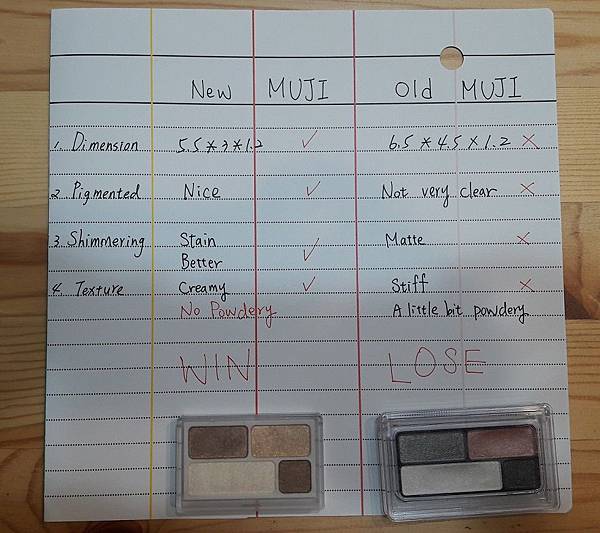 New MUJI Old MUJI
1. Dimension 5.5*3*1.2 ✓ 6.5*4.5×1.2 ×
2. Pigmented Nice ✓ Not very clear ×
3. Shimmering Stain ✓ Matte ×
Better
4. Texture Creamy ✓ Stiff ×
No Powdery A little bit powdery
WIN LOSE